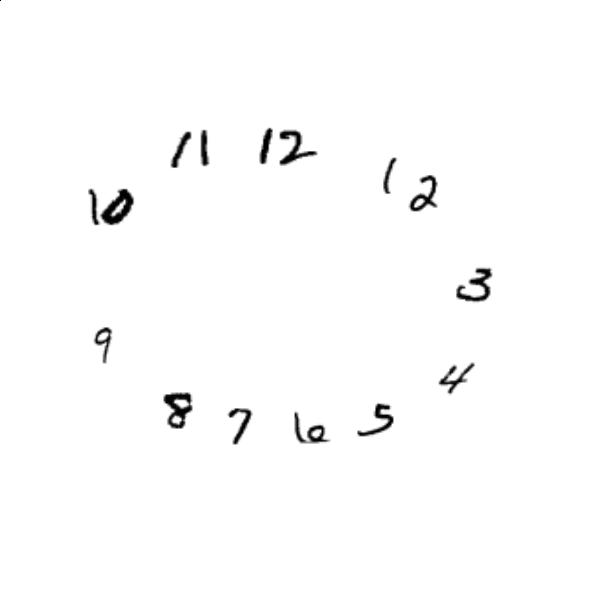 11 12 1 2
10
3
9
4
8 7 6 5